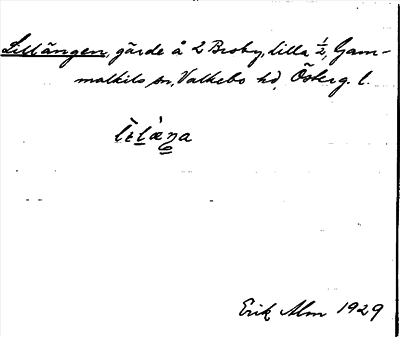 Lillängen, gärde å 2 Broby, lilla ½, Gam-
malkils sn, Valkebo hd, Österg. l.
Erik Alm 1929